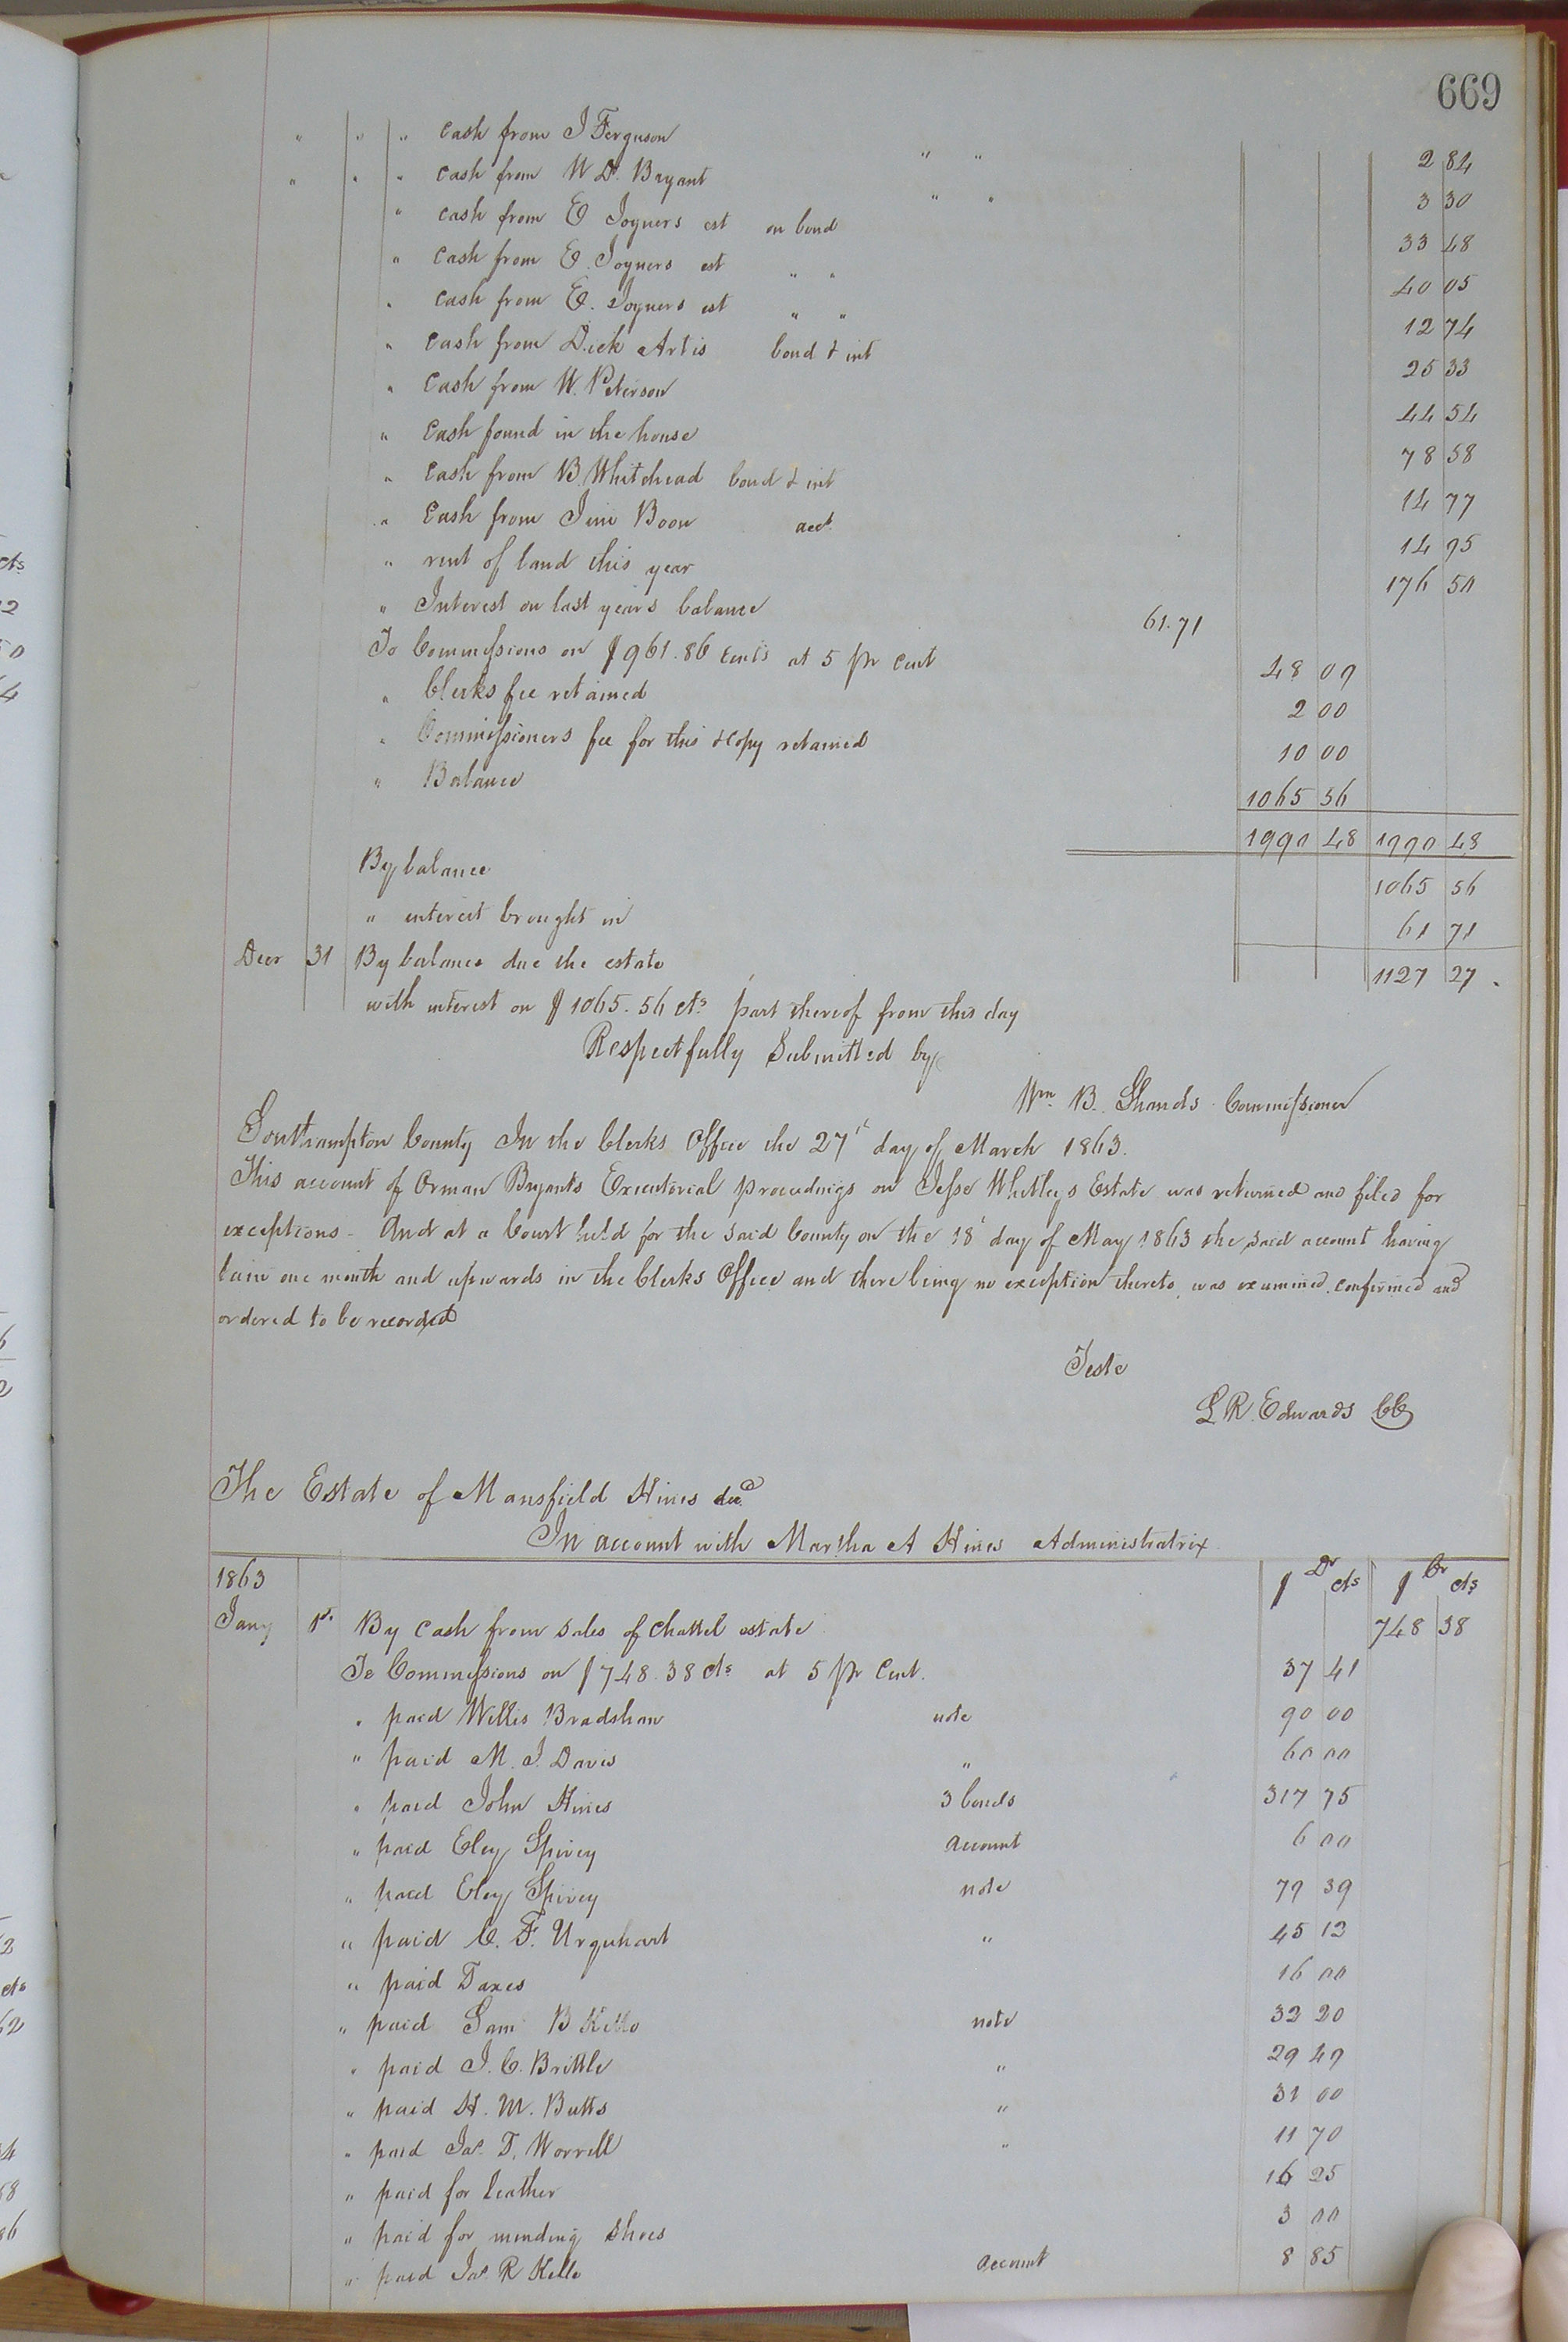 669
" " " cash from J Ferguson " " 2 84
" " " cash from W D. Bryant " " 3 30
" cash from E Joyners est on bond 33 48
" cash from E. Joyners est " " 40 05
" cash from E. Joyners est " " 12 74
" cash from Dick Artis bond & int 25 33
" cash from W. Peterson 44 54
" cash found in the house 78 58
" cash from B. Whitehead bond & int 14 77
" cash from Jim Boon acct 14 95
" rent of land this year 176 50
" Interest on last years balance 61.71
To Commissions on $961.86 cents at 5 pr cent 48 09
" Clerks fee retained 2 00
" Commissioners fee for this & copy retained 10 00
" Balance 1065 56
1990 48 1990 48
By balance 1065 56
" interest brought in 61 71
Decr 31 By balance due the estate 1127 27.
with interest on $1065.56 cts part thereof from this day
Respectfully Submitted by
Wm. B. Shands Commissioner
Southampton County In the Clerks Office the 27th day of March 1863.
This account of Orman Bryants Executorial proceedings on Jesse Whitleys Estate was returned and filed for
exceptions - And at a Court held for the said County on the 18t day of May 1863 the said account having
lain one month and upwards in the Clerks Office and there being no exception thereto, was examined, confirmed and
ordered to be recorded
Teste
L R. Edwards CC
The Estate of Mansfield Hines decd
In account with Martha A Hines Administratrix
1863 $ Dr cts $ Cr cts
Jany 1st. By cash from sales of chattel estate 748 38
To Commissions on $748.38 cts at 5 pr Cent. 37 41
" paid Willis Bradshaw note 90 00
" paid M. J. Davis " 60 00
" paid John Hines 3 bonds 317 75
" paid Eley Spivey account 6 00
" paid Eley Spivey note 79 39
" paid C. F. Urquhart " 45 12
" paid Taxes 16 00
" paid Sam B Kello note 32 20
" paid J. C. Brittle " 29 49
" paid H. M. Butts " 31 00
" paid Jas. T. Worrell " 11 70
" paid for leather 16 25
" paid for mending shoes 3 00
" paid Jas. R Kello account 8 85